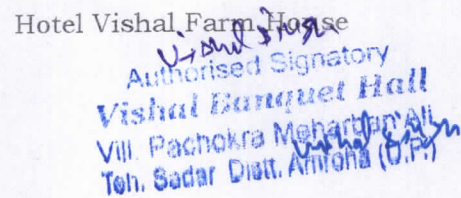 Hotel Vishal Farm House
Vishal Singh
Authorised Signatory
Vishal Banquet Hall
Vill. Pachokra Mehardpur Ali
Vishal Singh
Teh. Sadar Distt. Amroha (U.P.)